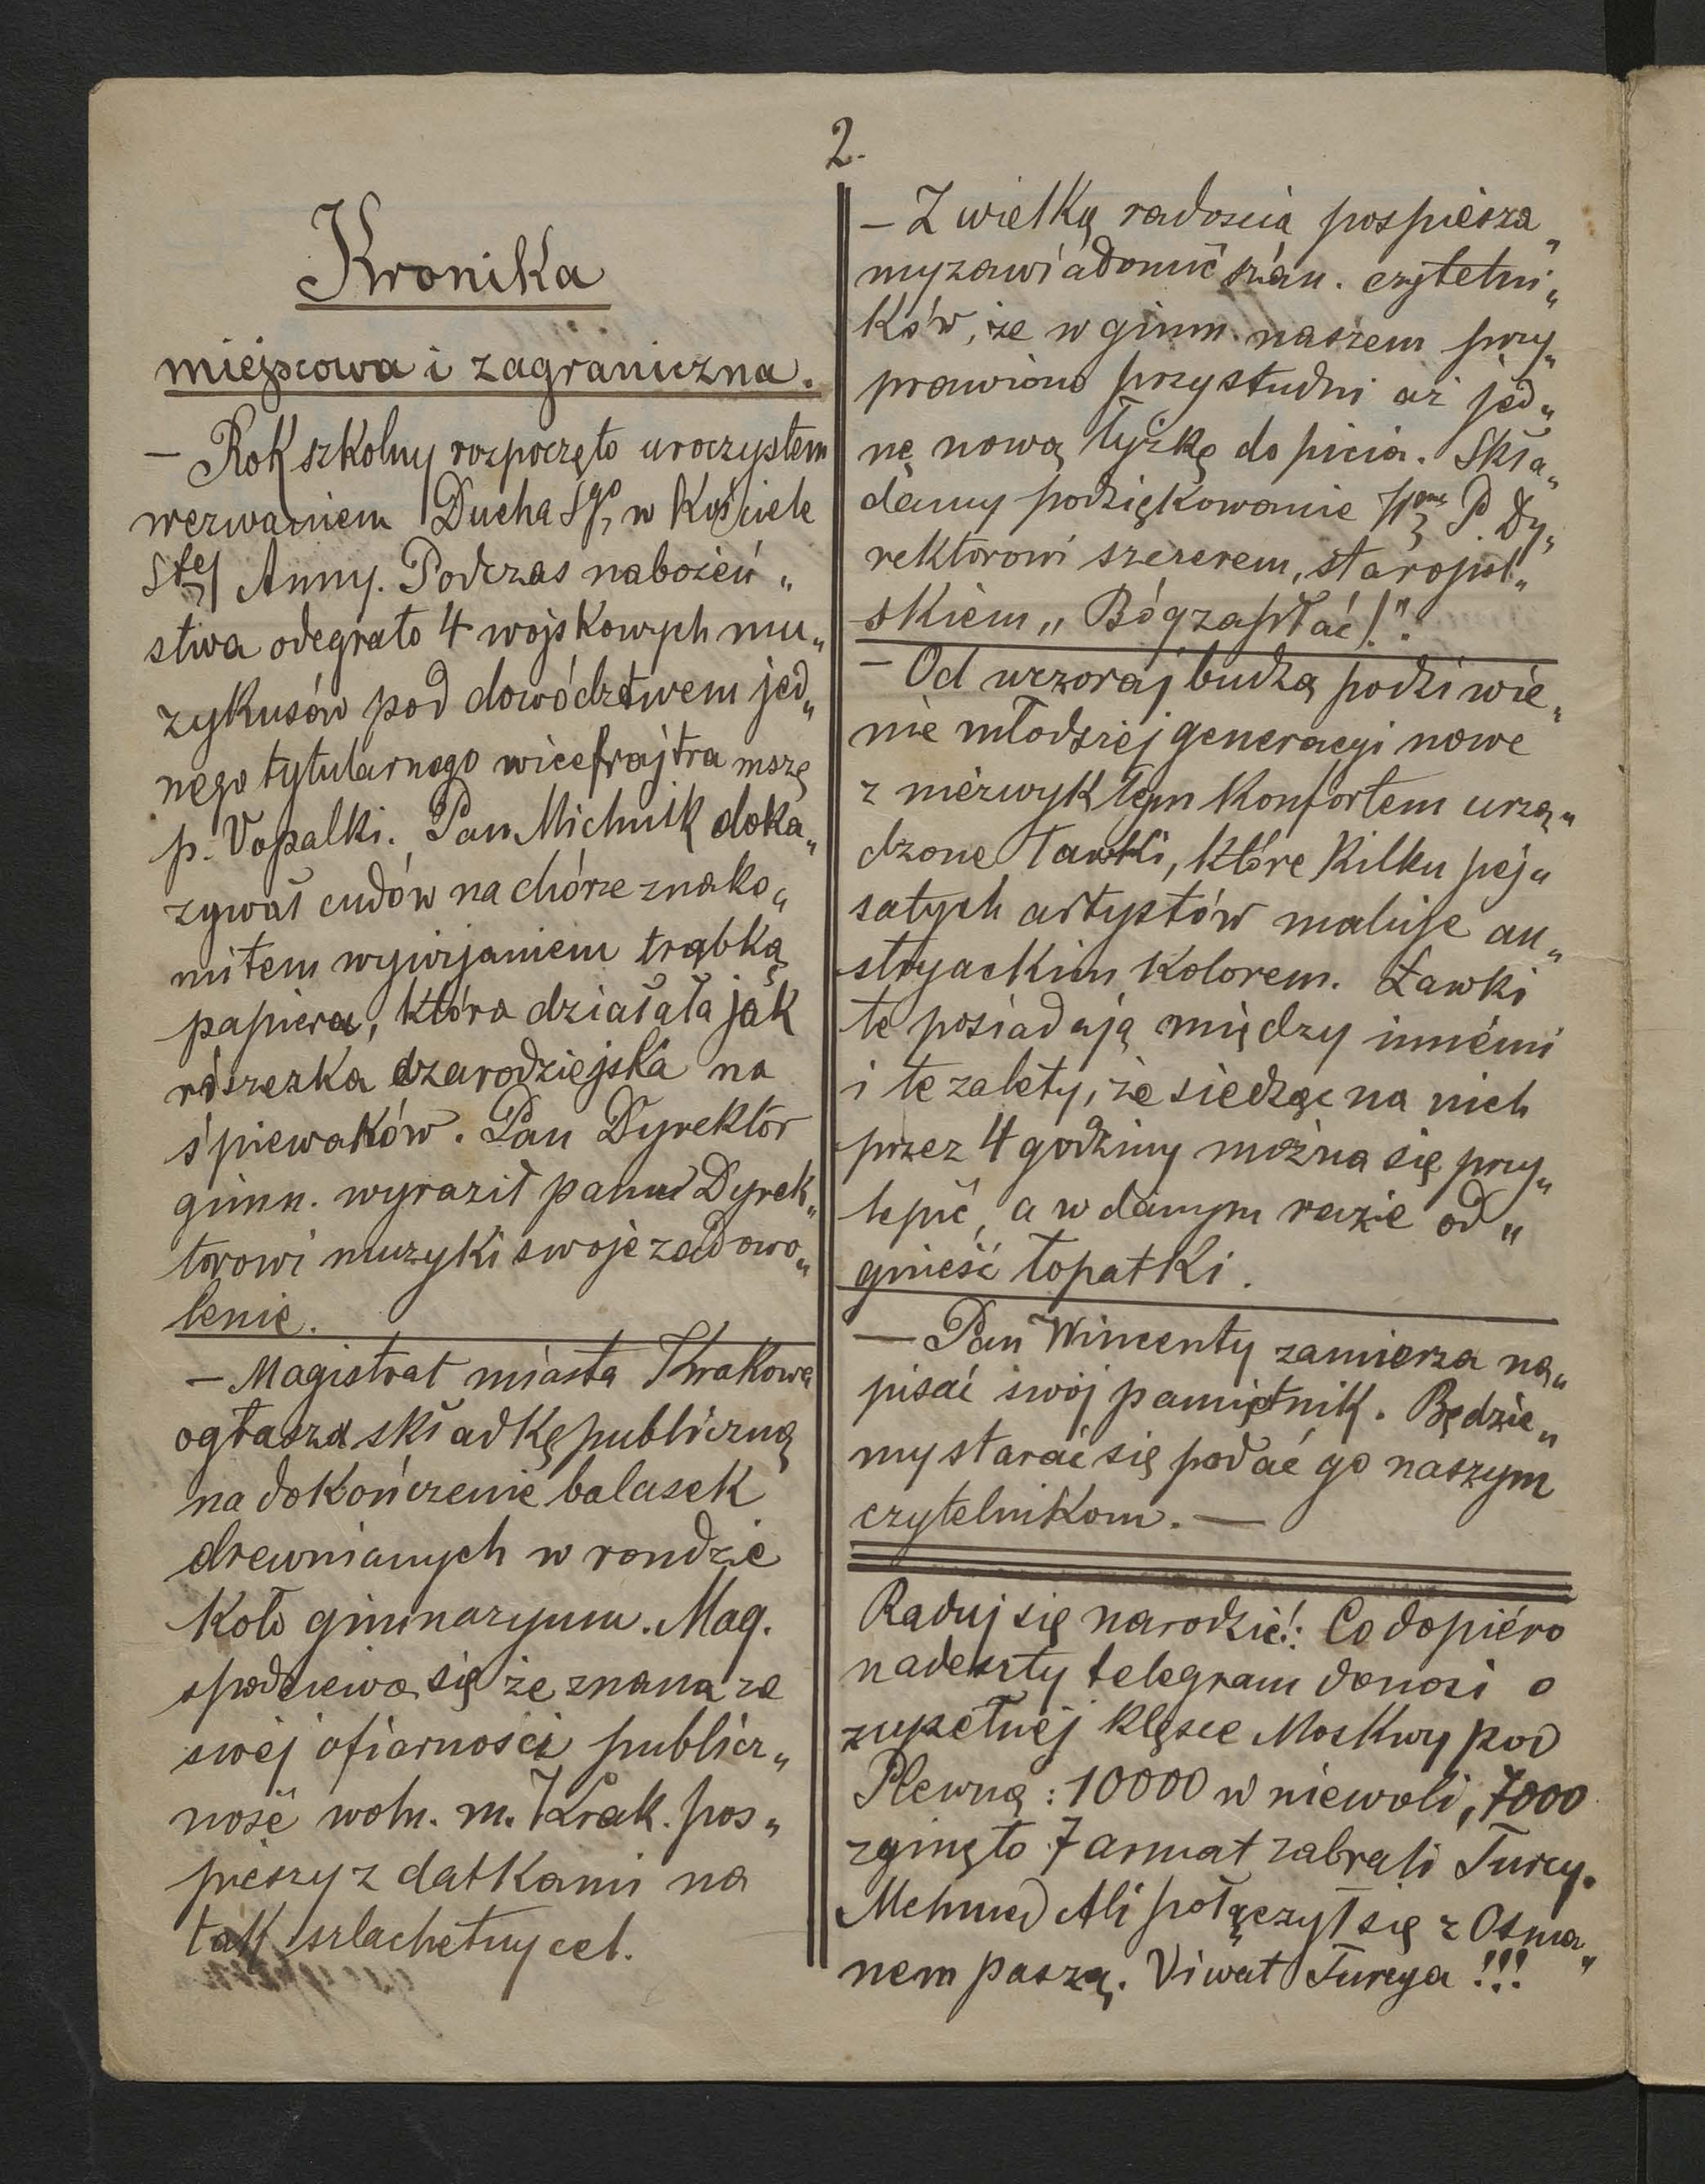 2.
Kronika
miejscowa i zagraniczna.
— Rok szkolny rozpoczęto uroczystem
wezwaniem Ducha Sgo, w Kościele
Stej Anny. Podczas nabożeń„
stwa odegrało 4 wojskowych mu„
zykusów pod dowództwem jed„
nego tytularnego wicefrajtra mszę
p. Vopalki. Pan Michnik doka„
zywał cudów na chórze znako„
mitem wywijaniem trąbką
papieru, która działała jak
różczka czarodziejska na
śpiewaków. Pan Dyrektor
gimn. wyraził panu Dyrek„
torowi muzyki swoje zadowo„
lenie.
— Magistrat miasta Krakowa
ogłasza składkę publiczną
na dokończenie balasek
drewnianych w rondzie
koło gimnazyum. Mag.
spodziewa się że znana ze
swej ofiarności publicz„
ność woln. m. Krak. pos„
pieszy z datkami na
tak szlachetny cel.
— Z wielką radością pospiesza„
my zawiadomić szan. czytelni„
ków, że w gimn. naszem przy„
prawiono przy studni aż jed„
nę nową łyżkę do picia. Skła„
damy podziękowanie P. Dy„
rektorowi szczerem, staropol„
skiem „Bóg zapłać!".
— Od wczoraj budzą podziwie„
nie młodszej generacyi nowe
z niezwykłym konfortem urzą„
dzone ławki, które kilku pej„
satych artystów maluje au„
stryackim kolorem. Ławki
te posiadają między innémi
i te zalety, że siedząc na nich
przez 4 godziny można się przy„
lepić, a w danym razie od„
gnieść łopatki.
— Pan Wincenty zamierza na„
pisać swój pamiętnik. Będzie„
my starać się podać go naszym
czytelnikom. —
Raduj się narodzie!: Co dopiéro
nadeszły telegram donosi o
zupełnej klęsce Moskwy pod
Plewną: 10000 w niewoli, 7000
zginęło 7 armat zabrali Turcy.
Mehmed Ali połączył się z Osma„
nem paszą. Viwat Turcya!!!